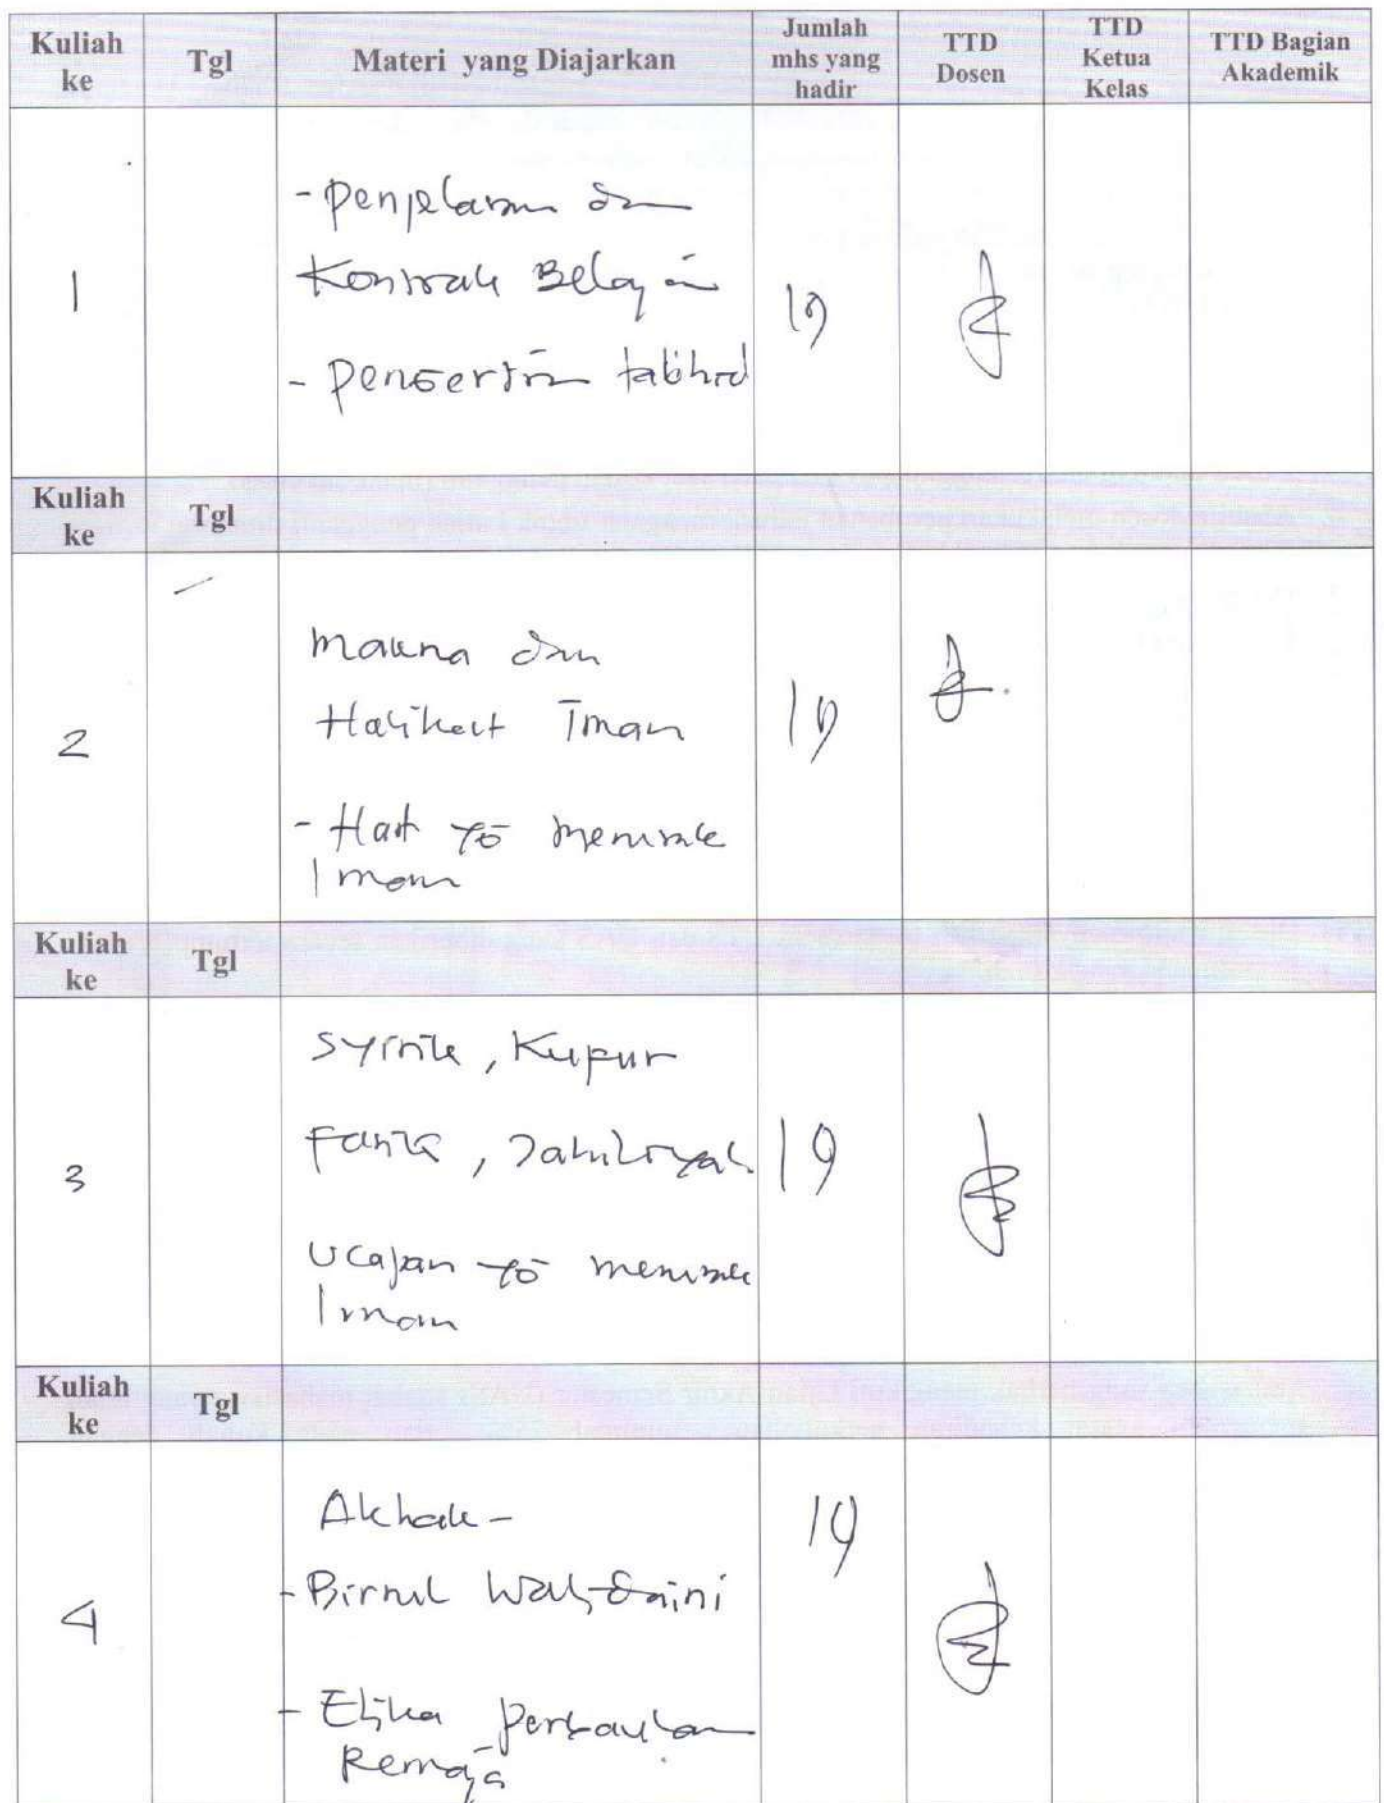 Kuliah ke Tgl Materi yang Diajarkan Jumlah mhs yang hadir TTD Dosen TTD Ketua Kelas TTD Bagian Akademik
- Penjelasan dan
Kontrak Belajar
1 19
- Pengertian tauhid
Kuliah ke Tgl
Makna dan
Hakikat Iman
2 19
- Hal yg merusak
Iman
Kuliah ke Tgl
Syirik, Kufur
Fasik, Jahiliyah
3 19
Ucapan yg merusak
Iman
Kuliah ke Tgl
Akhlak - 19
- Birrul Walidaini
4
- Etika Pergaulan
Remaja